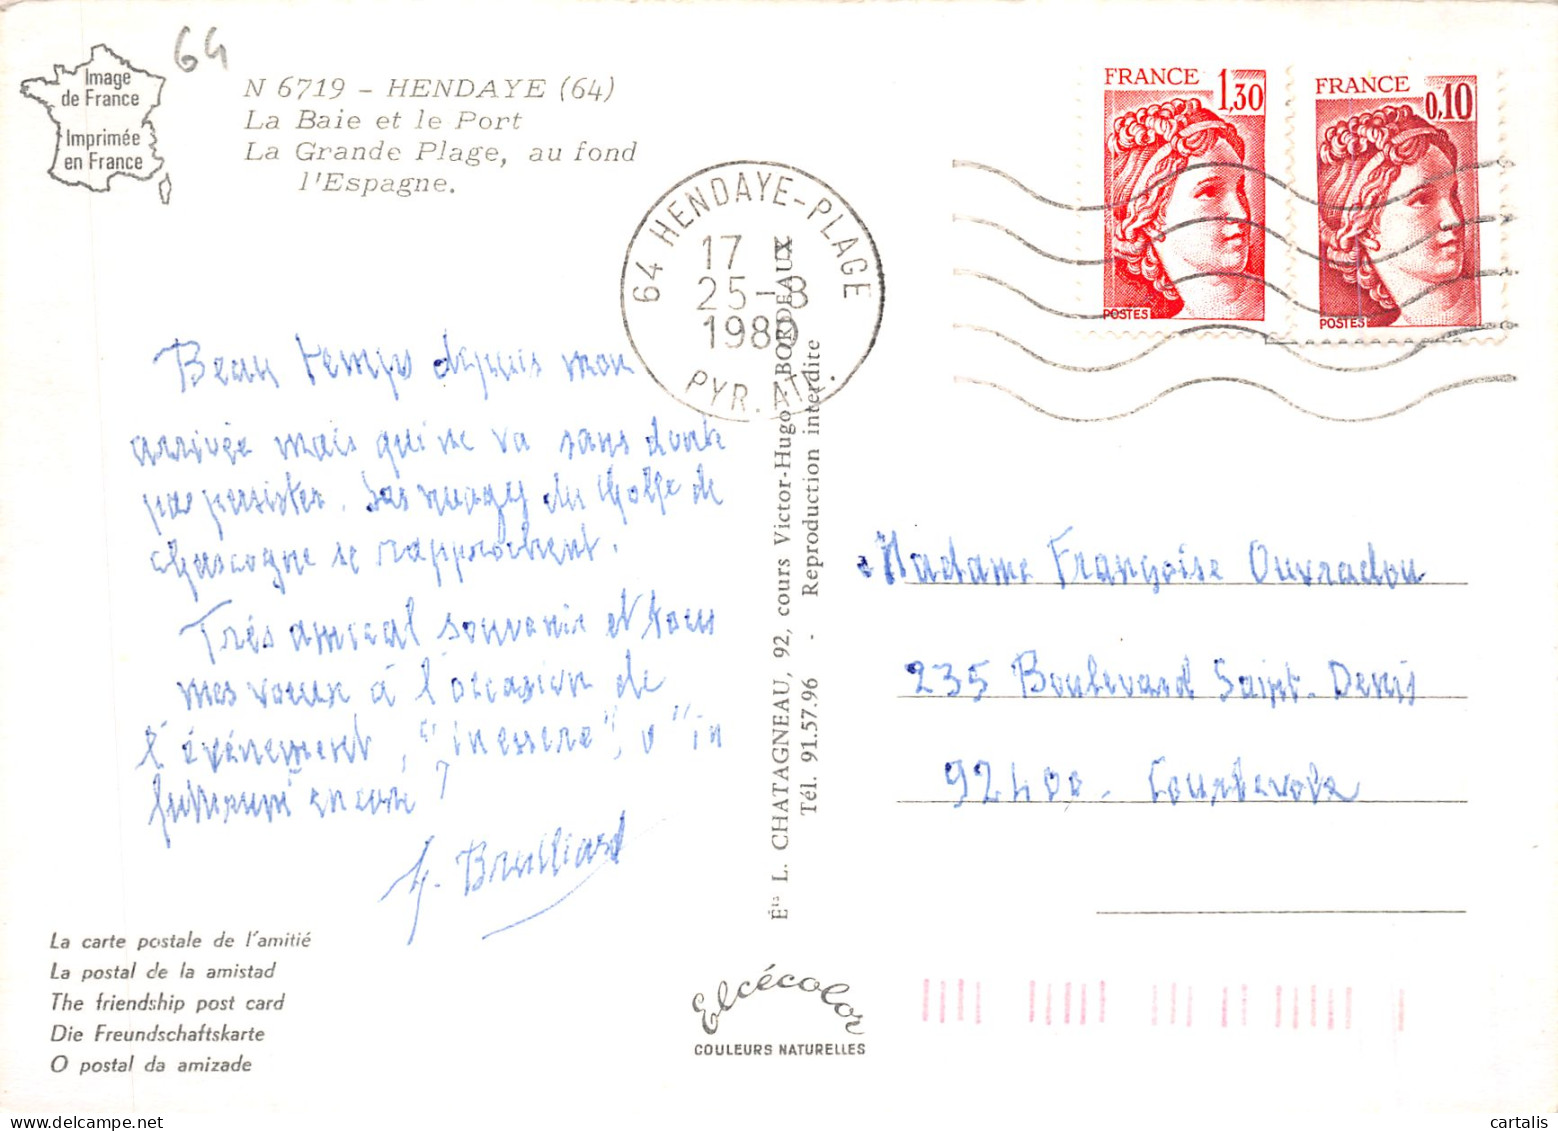 64
Image
de France
Imprimée
en France
N 6719 - HENDAYE (64)
La Baie et le Port
La Grande Plage, au fond
l'Espagne.
64 HENDAYE-PLAGE
17 H
25-8
1980
PYR. ATL.
FRANCE
1,30
POSTES
FRANCE
0,10
POSTES
Beau temps depuis mon
arrivée mais qui ne va sans doute
pas persister. Les nuages du Golfe de
Ghascogne se rapprochent.
Très amical souvenir et tous
mes voeux à l'occasion de
l'événement,
encore
G. Brulliard
Éts L. CHATAGNEAU, 92, cours Victor-Hugo - BORDEAUX
Tél. 91.57.96 - Reproduction interdite
Madame Françoise Ouvradou
235 Boulevard Saint-Denis
92400 - Courbevoie
La carte postale de l'amitié
La postal de la amistad
The friendship post card
Die Freundschaftskarte
O postal da amizade
Elcécolor
COULEURS NATURELLES
cartalis